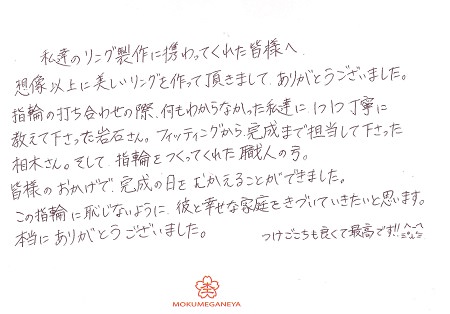 私達のリング製作に携わってくれた皆様へ
想像以上に美しいリングを作って頂きまして、ありがとうございました。
指輪の打ち合わせの際、何もわからなかった私達に1つ1つ丁寧に
教えて下さった岩石さん。フィッティングから、完成まで担当して下さった
相木さん。そして、指輪をつくってくれた職人の方。
皆様のおかげで、完成の日をむかえることができました。
この指輪に恥じないように、彼と幸せな家庭をきづいていきたいと思います。
本当にありがとうございました。
つけごこちも良くて最高です!!
MOKUMEGANEYA